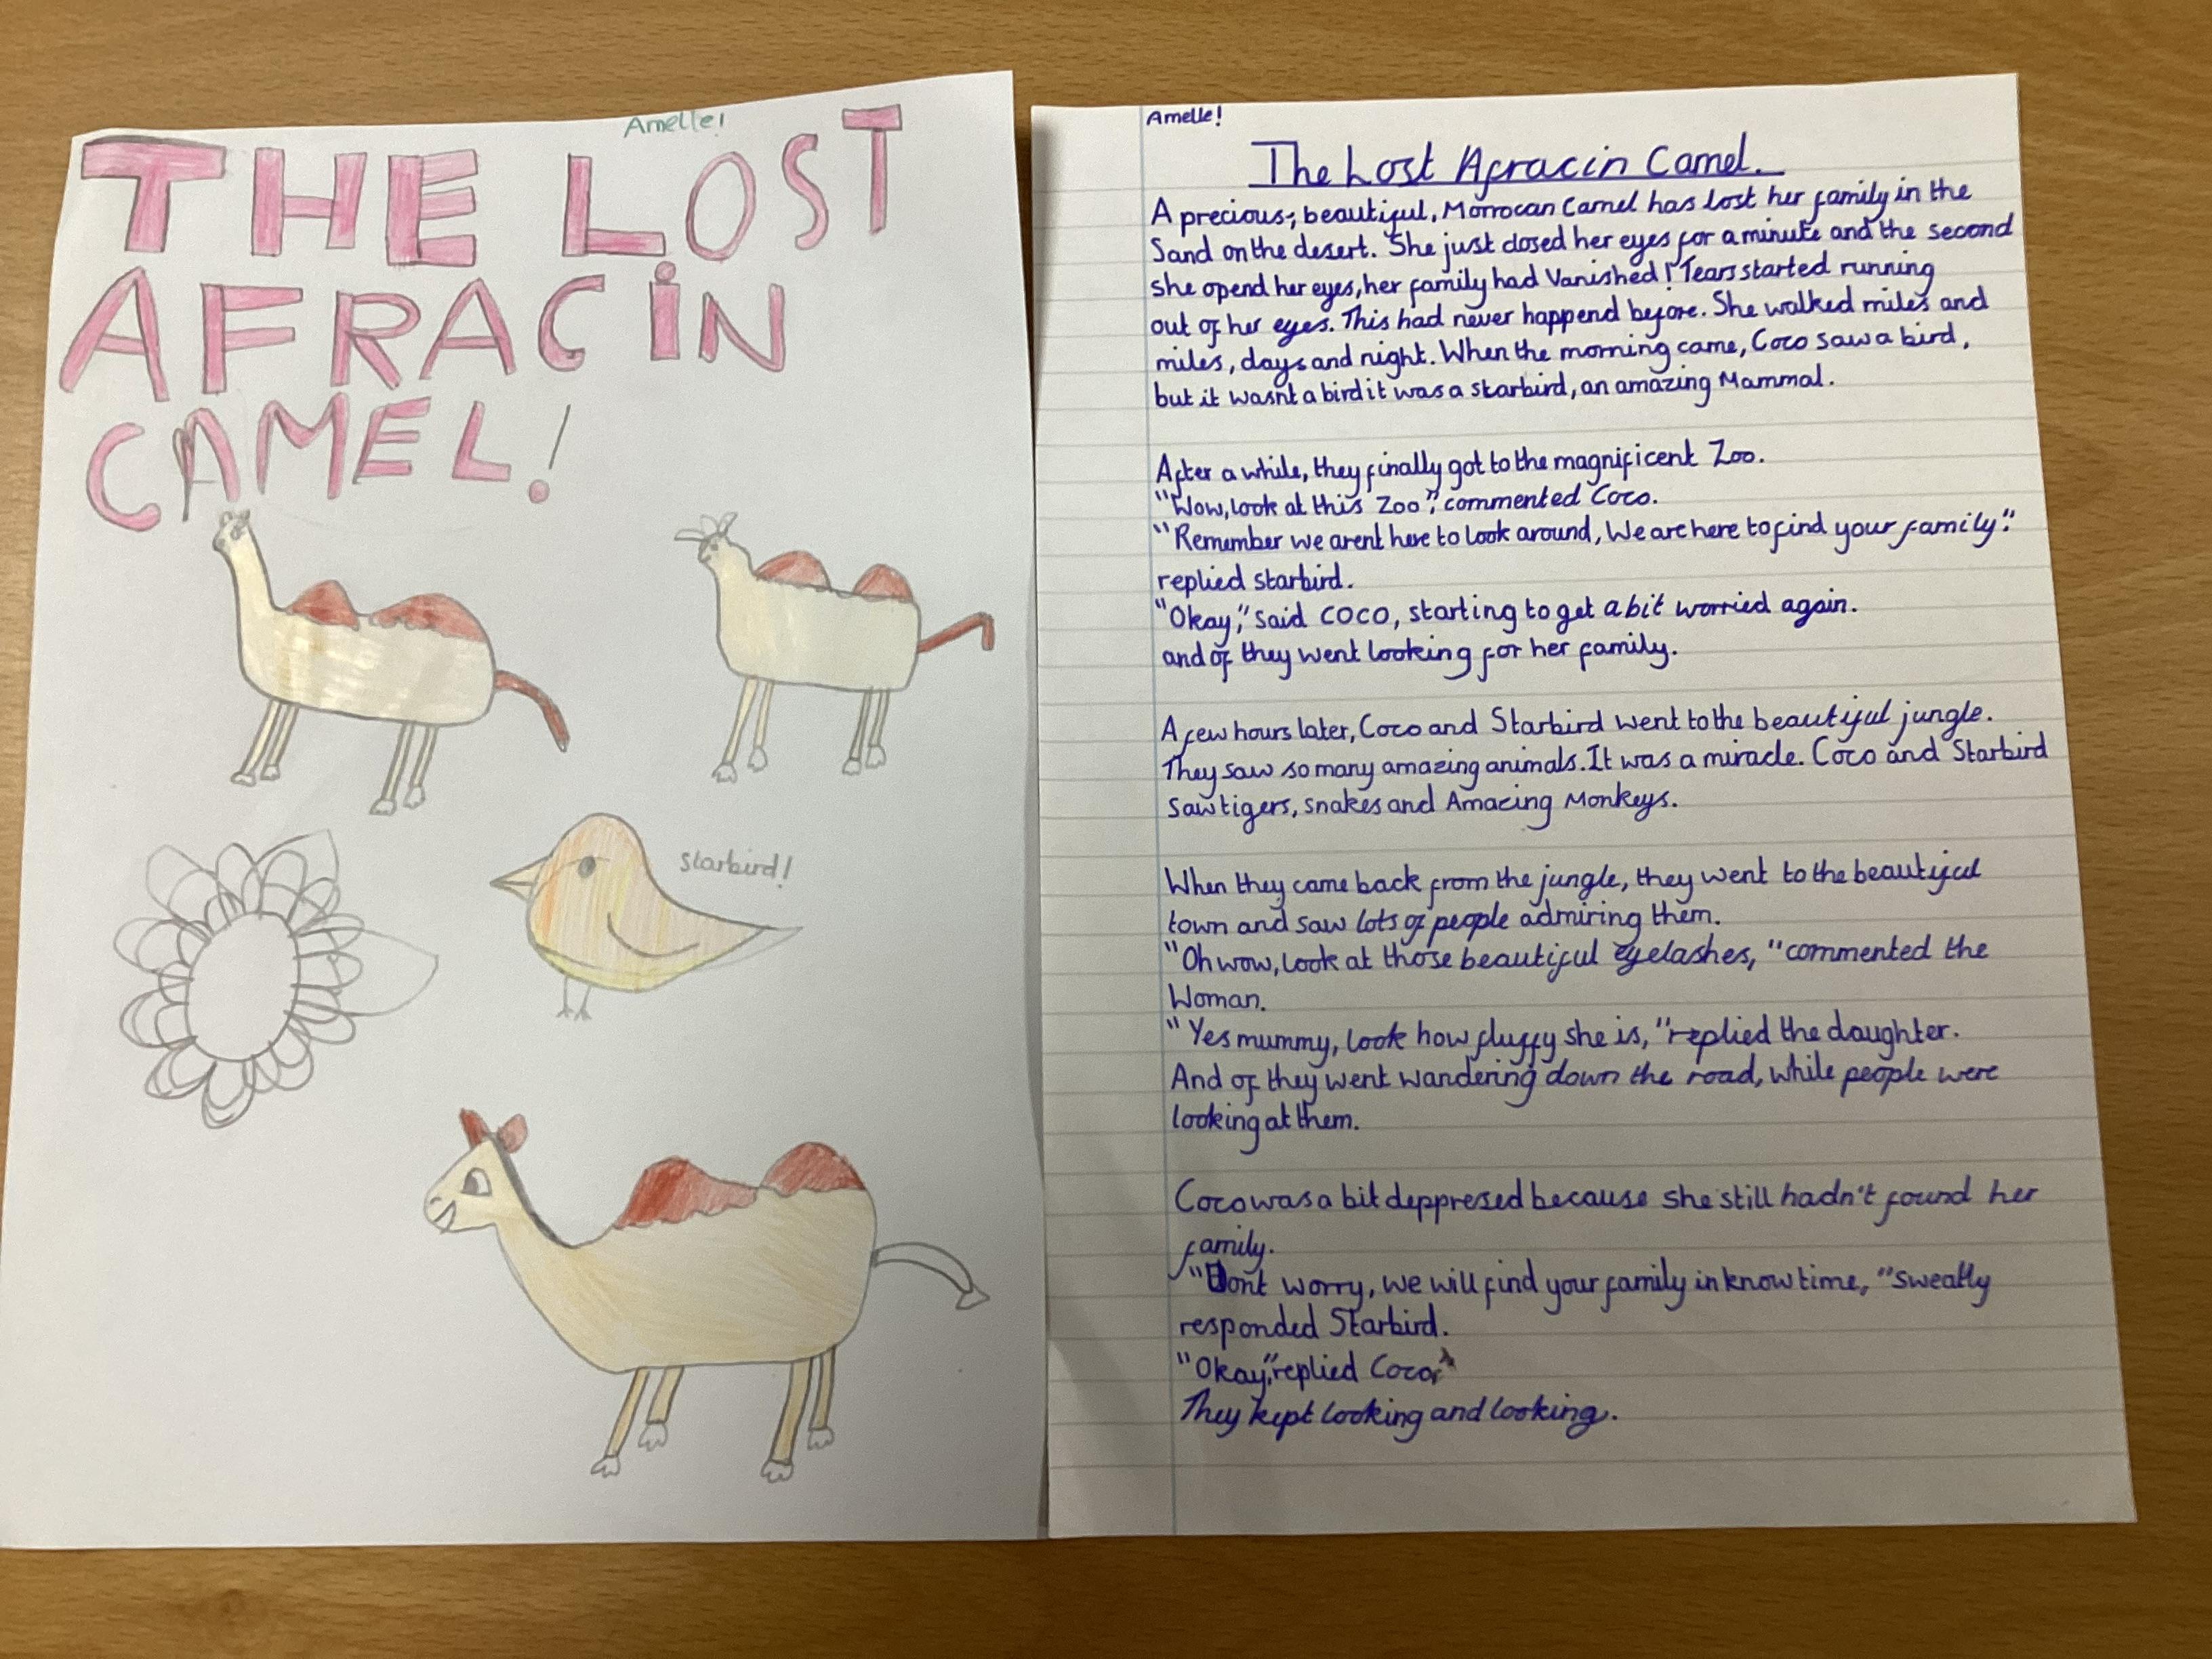 Amelle!
THE LOST
AFRACiN
CAMEL!
starbird!
Amelle!
The Lost Afracin Camel.
A precious, beautiful, Morrocan Camel has lost her family in the
Sand on the desert. She just closed her eyes for a minute and the second
she opend her eyes, her family had Vanished! Tears started running
out of her eyes. This had never happend before. She walked miles and
miles, days and night. When the morning came, Coco saw a bird,
but it wasnt a bird it was a starbird, an amazing Mammal.
After a while, they finally got to the magnificent Zoo.
"Wow, look at this Zoo", commented Coco.
"Remember we arent here to look around, We are here to find your family".
replied starbird.
"Okay", said COCO, starting to get a bit worried again.
and of they went looking for her family.
A few hours later, Coco and Starbird went to the beautiful jungle.
They saw so many amazing animals. It was a miracle. Coco and Starbird
Saw tigers, snakes and Amazing Monkeys.
When they came back from the jungle, they went to the beautiful
town and saw lots of people admiring them.
"Oh wow, look at those beautiful eyelashes, "commented the
Woman.
"Yes mummy, look how fluffy she is, "replied the daughter.
And of they went wandering down the road, while people were
looking at them.
Coco was a bit deppresed because she still hadn't found her
family.
"Dont worry, we will find your family in know time, "sweatly
responded Starbird.
"Okay," replied Coco.
They kept looking and looking.